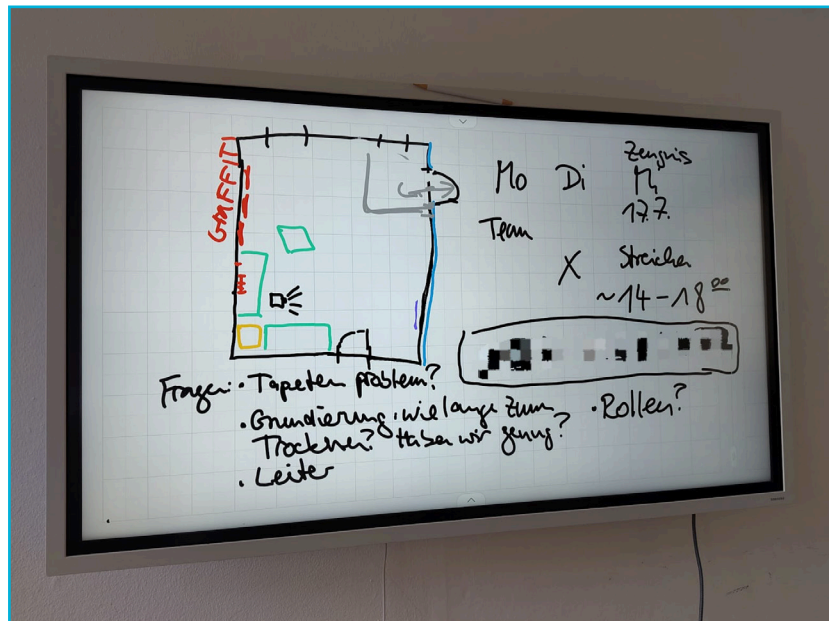 GRAFFITI
Zeugnis
Mo Di Mi
17.7.
Team
X Streichen
~14-18 00
Fragen: • Tapeten problem?
• Grundierung: wie lange zum
Trocknen? Haben wir genug?
• Rollen?
• Leiter